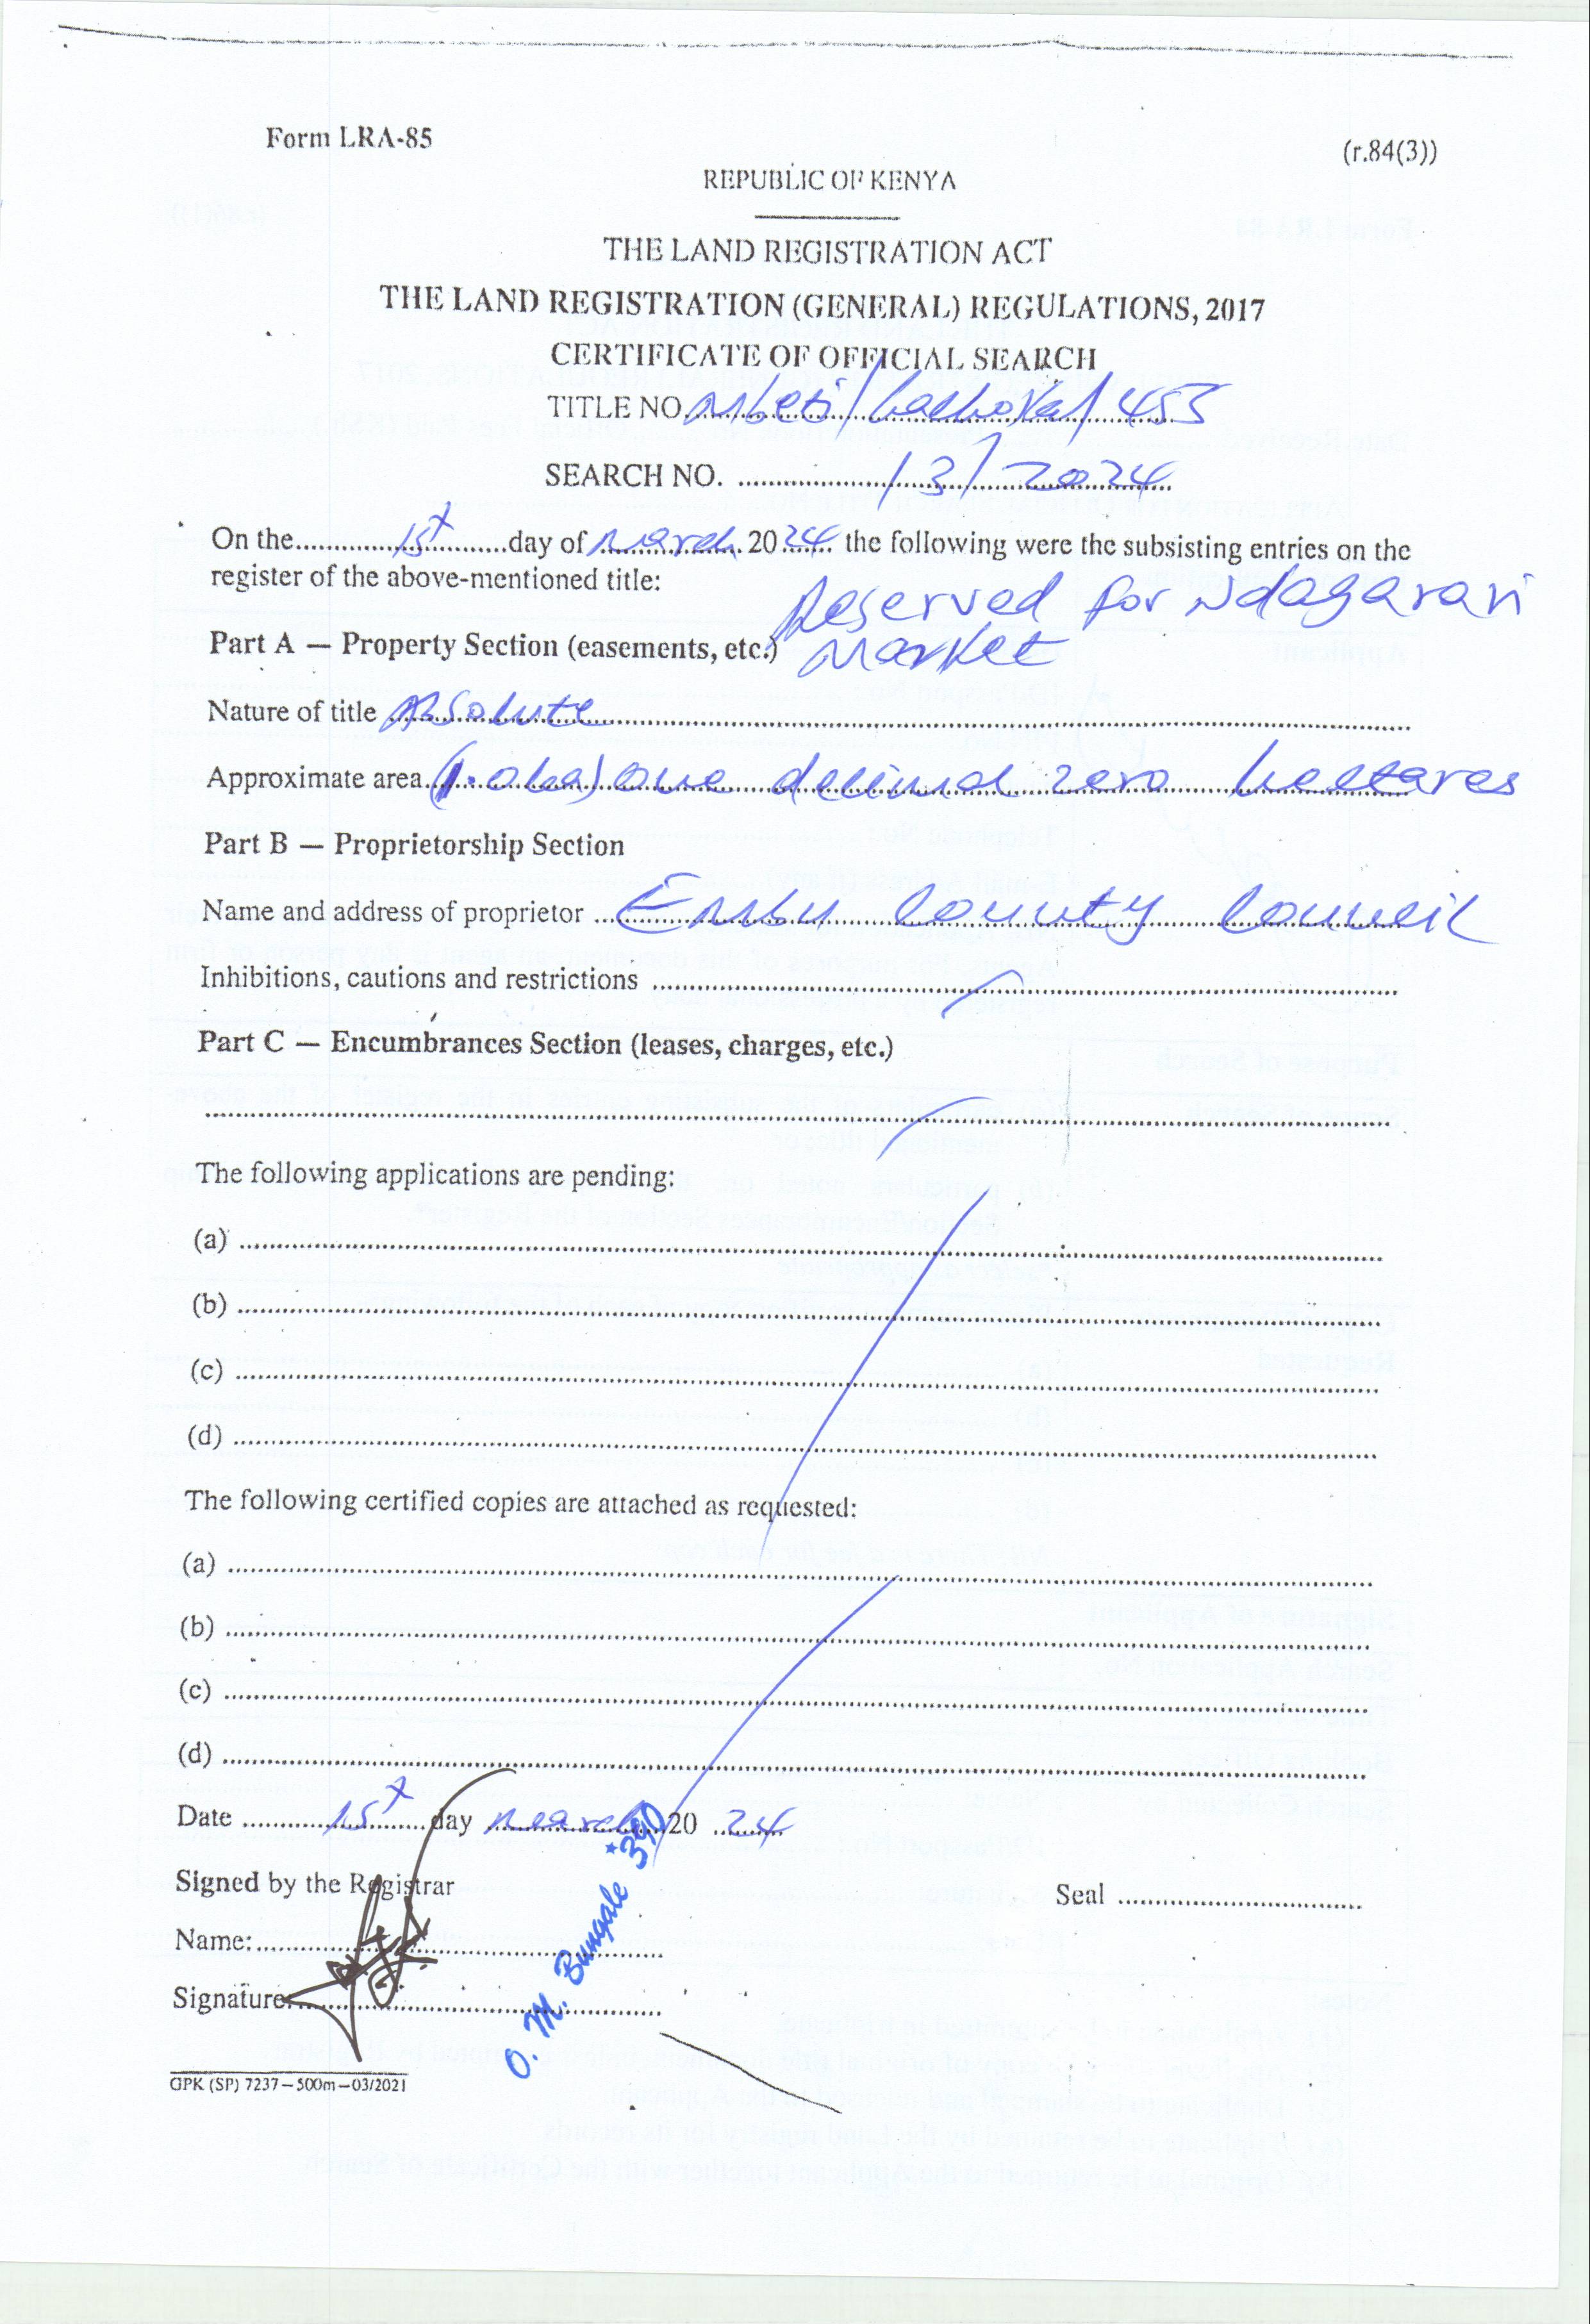 Form LRA-85
(r.84(3))
REPUBLIC OF KENYA
THE LAND REGISTRATION ACT
THE LAND REGISTRATION (GENERAL) REGULATIONS, 2017
CERTIFICATE OF OFFICIAL SEARCH
TITLE NO. Mbeti/ /453
SEARCH NO. ............ /3/2024
On the............1st............day of March 2024 the following were the subsisting entries on the
register of the above-mentioned title:
Reserved for Ndagarari
Part A — Property Section (easements, etc.) Market
Nature of title Absolute
Approximate area (1.0ha) One decimal zero hectares
Part B — Proprietorship Section
Name and address of proprietor ... Embu County Council
Inhibitions, cautions and restrictions ............
Part C — Encumbrances Section (leases, charges, etc.)
The following applications are pending:
(a) ............
(b) ............
(c) ............
(d) ............
The following certified copies are attached as requested:
(a) ............
(b) ............
(c) ............
(d) ............
Date ......1st......day March 20 24
Signed by the Registrar
Seal ............
Name:............
O. M. Bungale *390
Signature............
GPK (SP) 7237—500m—03/2021